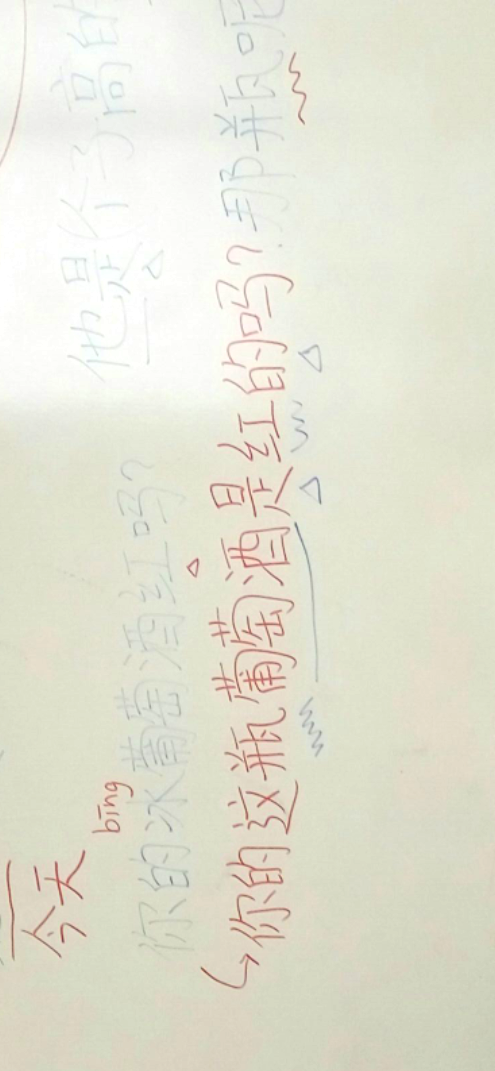 今天
他是个子高的
bīng
你的冰葡萄酒红吗?
你的这瓶葡萄酒是红的吗?那瓶呢